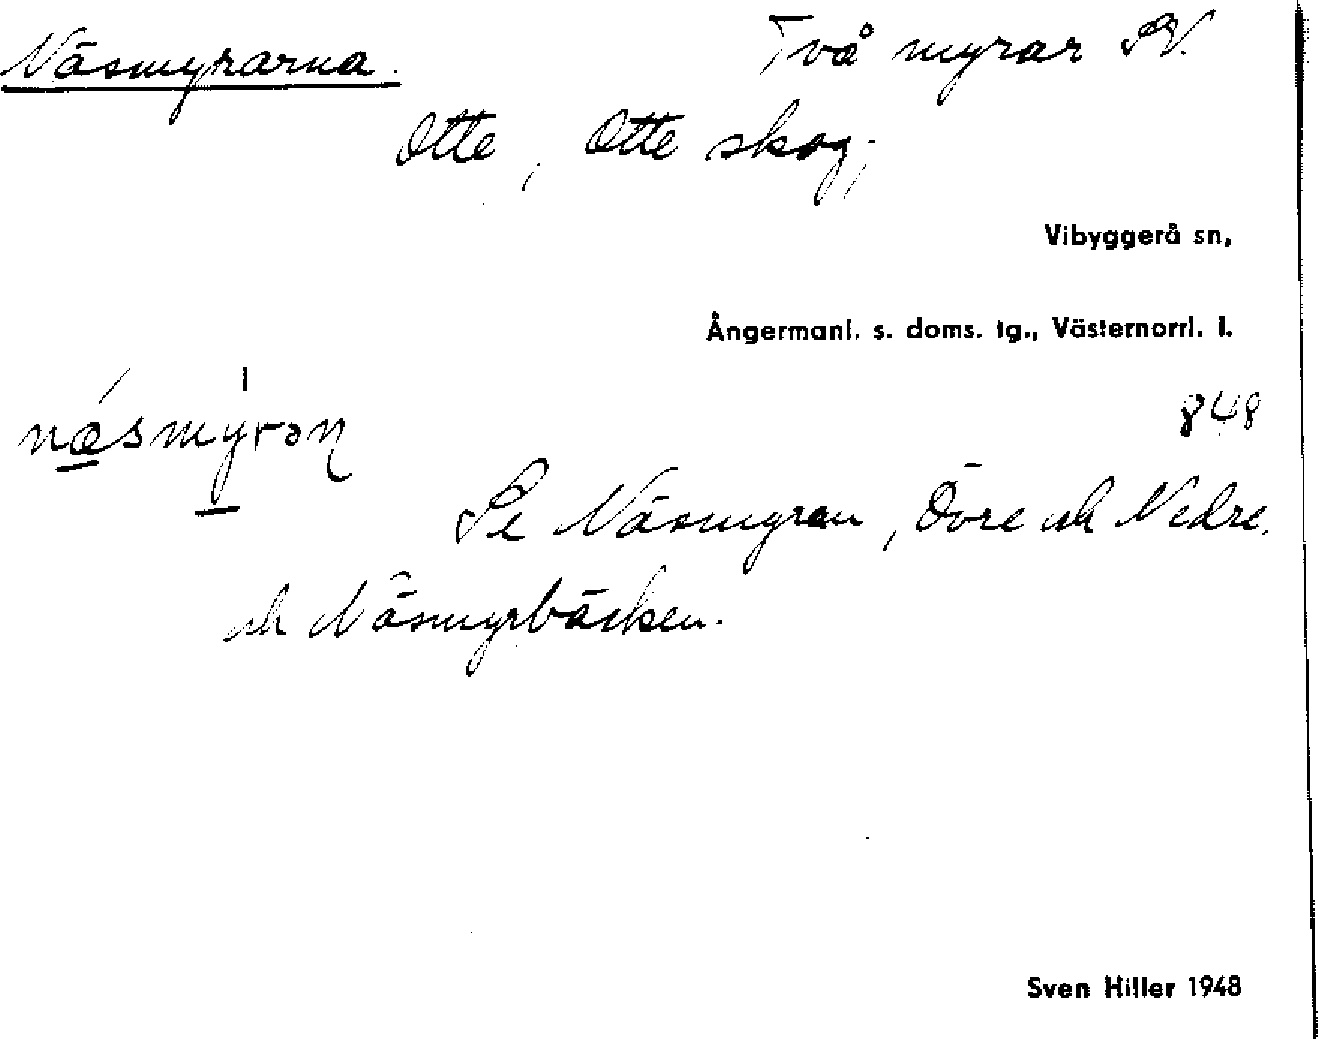 Näsmyrarna. Två myrar SV.
Otte, Otte skog;
Vibyggerå sn,
Ångermanl. s. doms. tg., Västernorrl. l.
848
næsmyrən
Se Näsmyran, Övre och Nedre.
och Näsmyrbäcken.
Sven Hiller 1948